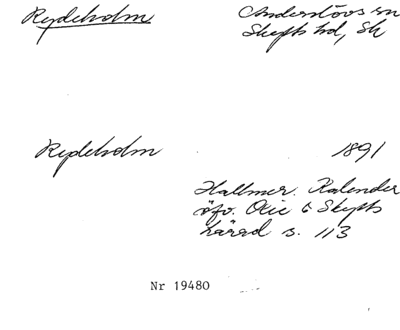 Rydeholm
Anderslövs sn
Skytts hd, Sk
Rydeholm
1891
Hallmer. Kalender
öfv. Oxie & Skytts
härad s. 113
Nr 19480